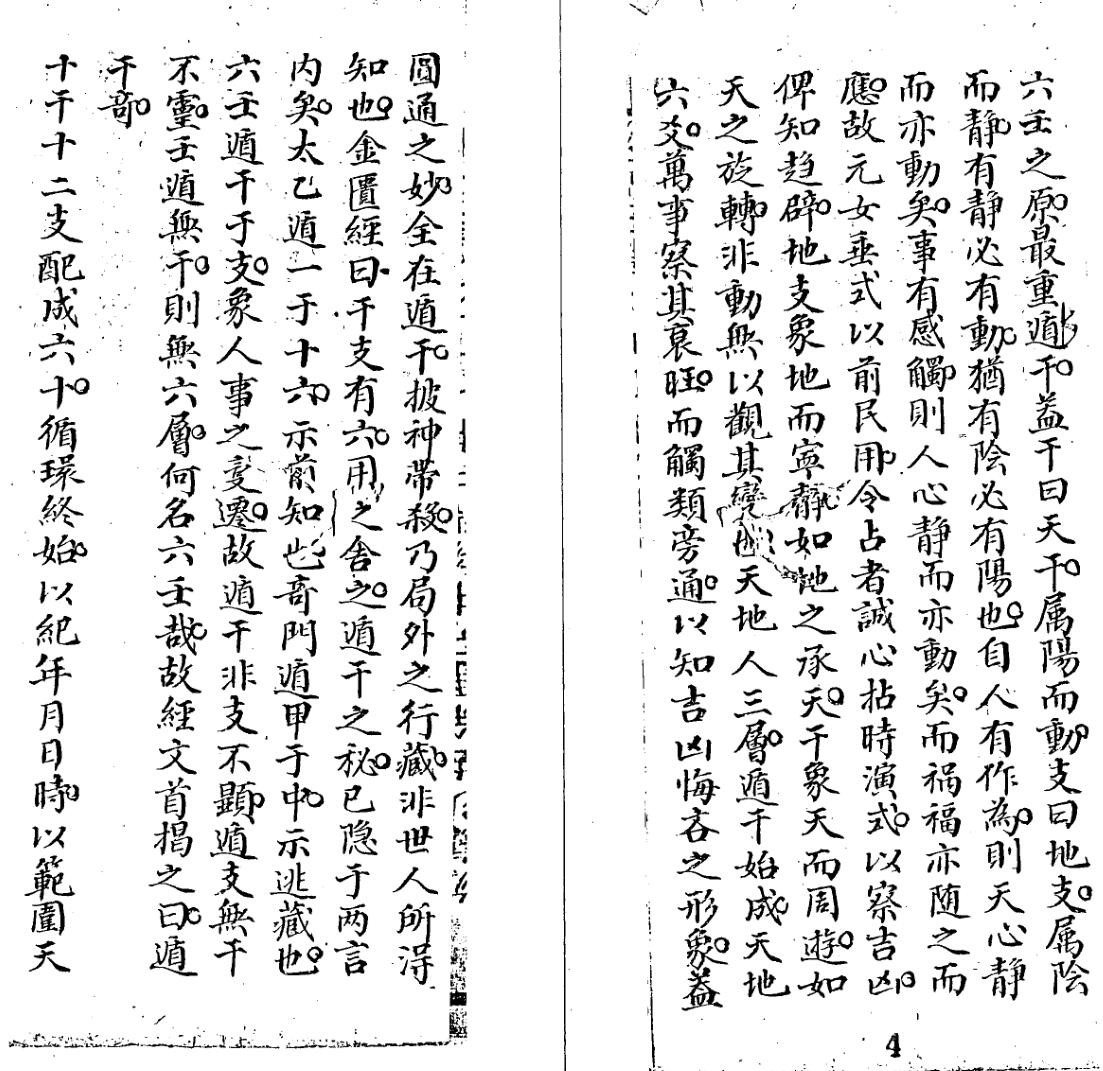 六壬之原最重遁干盖干曰天干属陽而動支曰地支属陰
而静有静必有動猶有陰必有陽也自人有作為則天心静
而亦動矣事有感觸則人心静而亦動矣而禍福亦随之而
應故元女垂式以前民用令占者誠心拈時演式以察吉凶
俾知趋辟地支象地而寧静如地之承天干象天而周遊如
天之旋轉非動無以觀其變也天地人三層遁干始成天地
六爻萬事察其衰旺而觸類旁通以知吉凶悔吝之形象盖
4
圓通之妙全在遁干披神帶殺乃局外之行藏非世人所淂
知也金匱經曰干支有六用之舍之遁干之秘已隐于两言
内矣太乙遁一于十六示前知也奇門遁甲于中示逃藏也
六壬遁干于支象人事之变遷故遁干非支不顯遁支無干
不靈壬遁無干則無六層何名六壬哉故經文首揭之曰遁
干奇
十干十二支配成六十循環終始以紀年月日時以範圍天